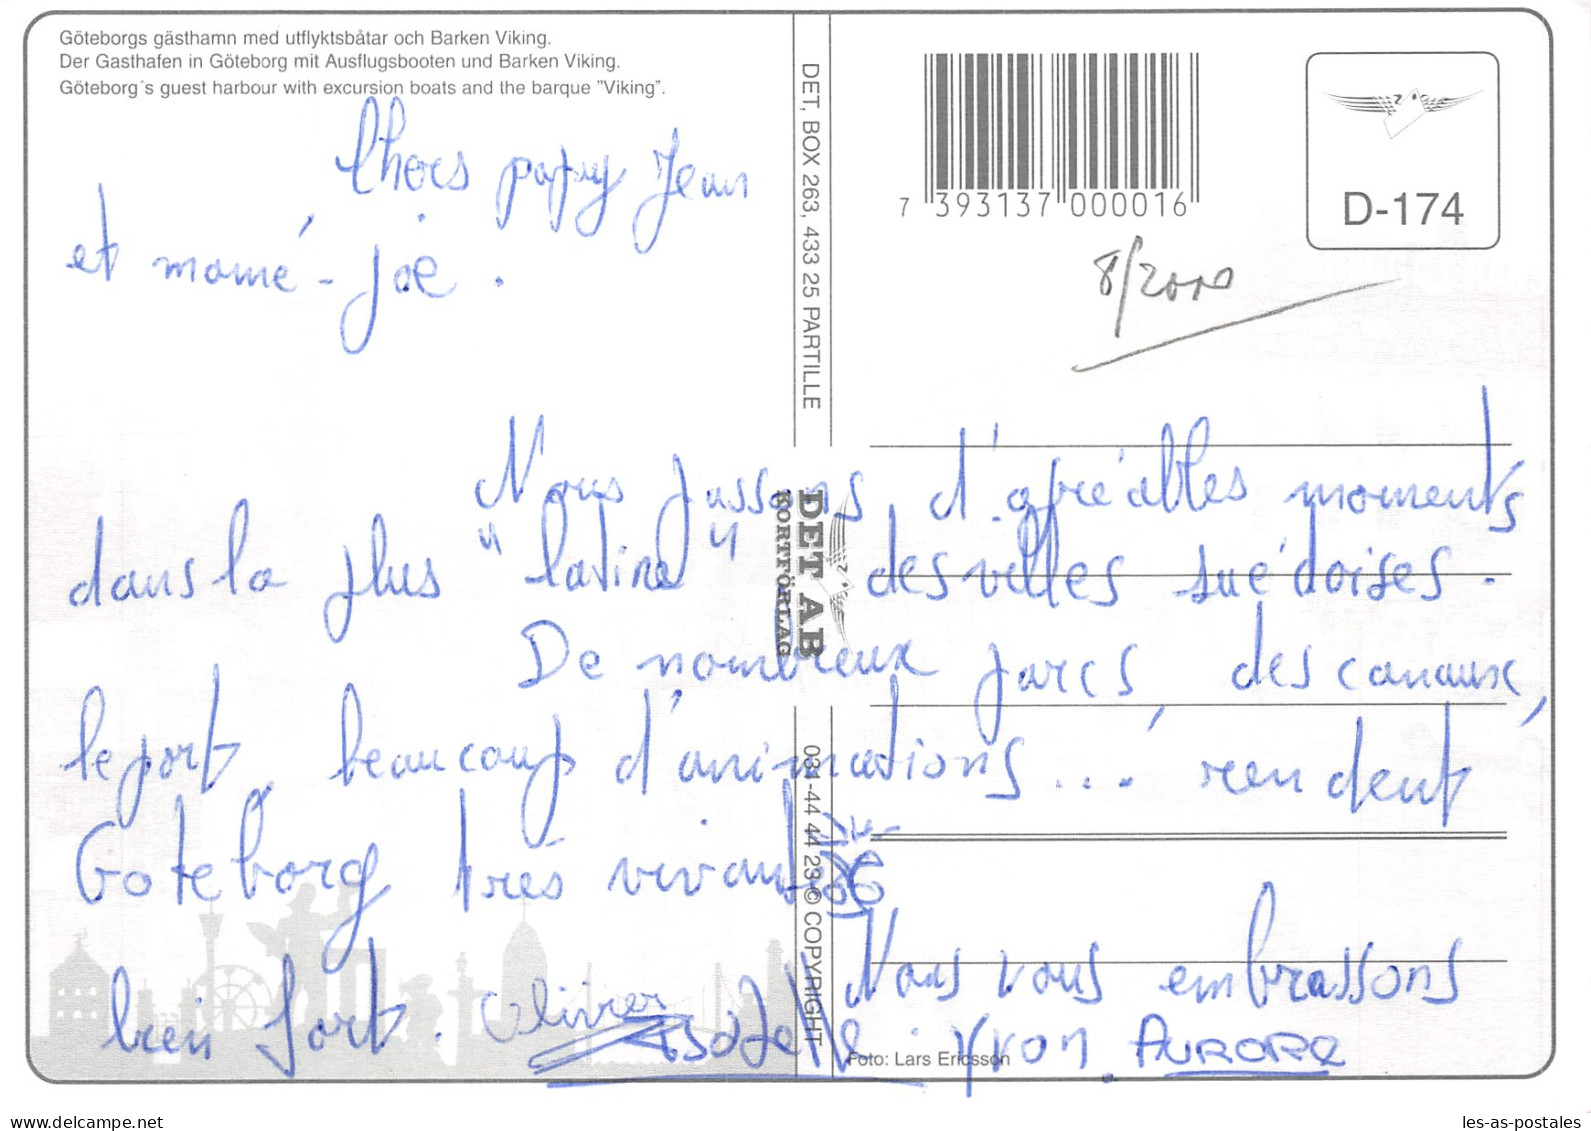 Göteborgs gästhamn med utflyktsbåtar och Barken Viking.
Der Gasthafen in Göteborg mit Ausflugsbooten und Barken Viking.
Göteborg´s guest harbour with excursion boats and the barque "Viking".
Chers papy Jean
et mamé - Joë .
Nous passons d'agréables moments
dans la plus "latine" des villes suédoises.
De nombreux parcs des canaux,
le port, beaucoup d'animations... rendent
Göteborg très vivante
Nous vous embrassons
bien fort. Olivier Isabelle. Yvon. AURORE
DET, BOX 263, 433 25 PARTILLE
DET AB
KORTFÖRLAG
031-44 44 23 © COPYRIGHT
7 393137 000016
D-174
8/2000
Foto: Lars Ericsson
delcampe.net
les-as-postales